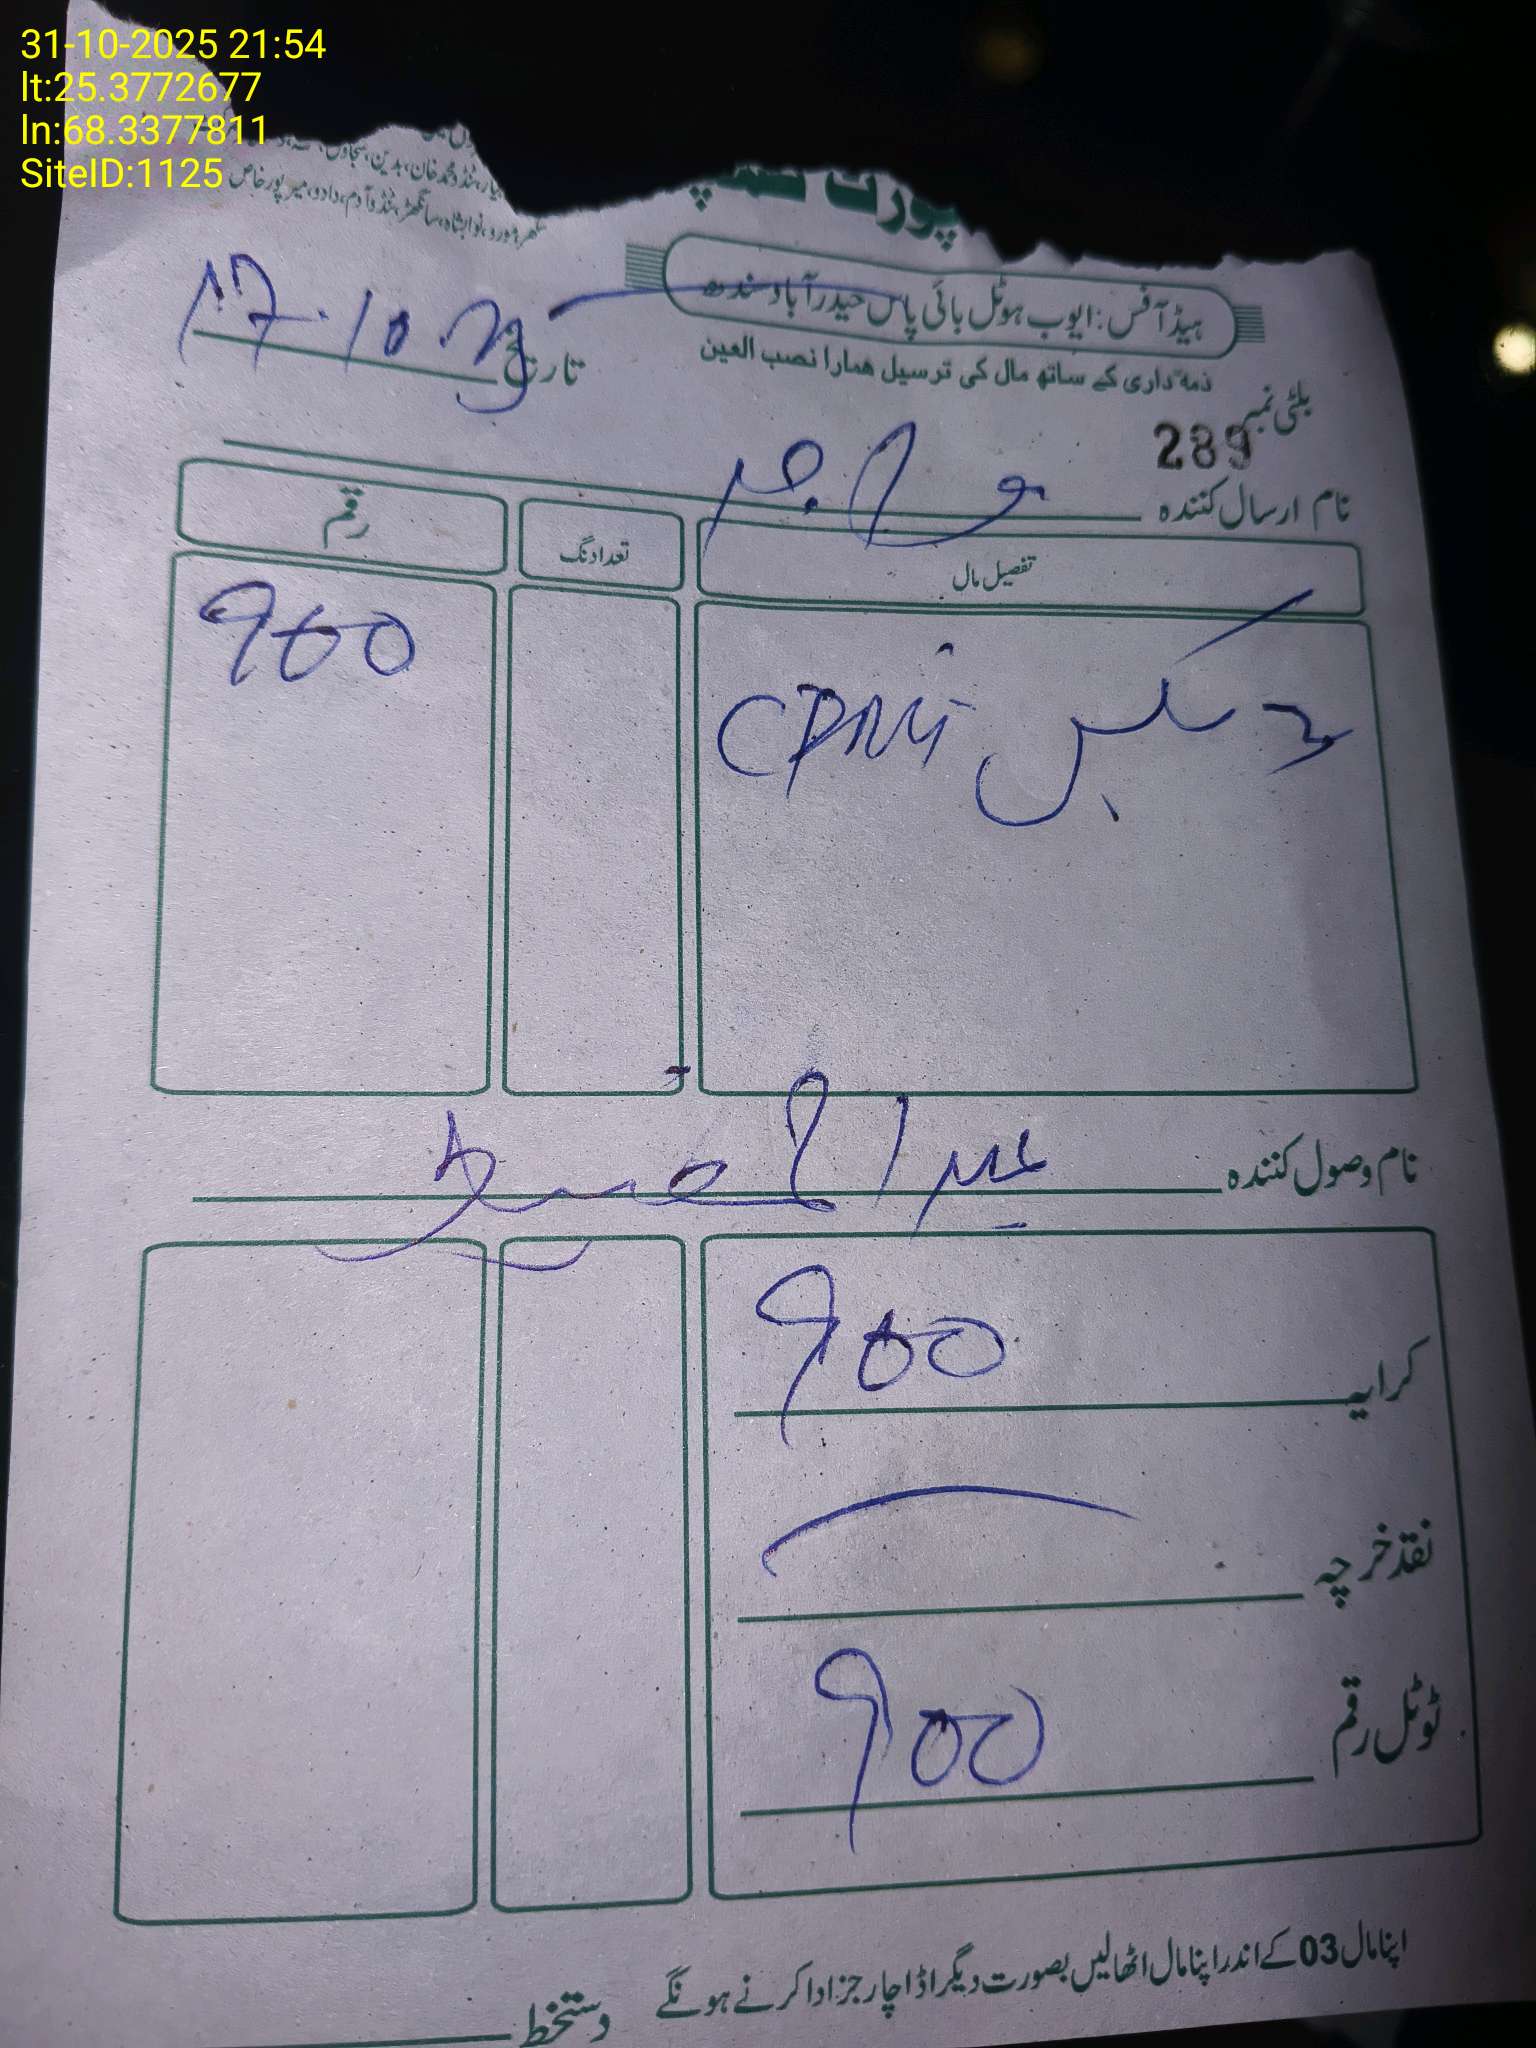 31-10-2025 21:54
lt:25.3772677
ln:68.3377811
SiteID:1125
ٹنڈومحمدخان، بدین، سجاول،
مورو، نوابشاہ، سانگھڑ، ٹنڈوآدم، دادو، میرپورخاص
پورٹ
ہیڈ آفس: ایوب ہوٹل بائی پاس حیدرآباد سندھ
ذمہ داری کے ساتھ مال کی ترسیل ہمارا نصب العین
تاریخ 17.10
بلٹی نمبر
289
نام ارسال کنندہ
تفصیل مال تعداد نگ رقم
بکس 900
نام وصول کنندہ
کرایہ 900
نقد خرچہ
ٹوٹل رقم 900
اپنا مال 03 کے اندر اپنا مال اٹھالیں بصورت دیگر اڈا چارجز ادا کرنے ہونگے
دستخط